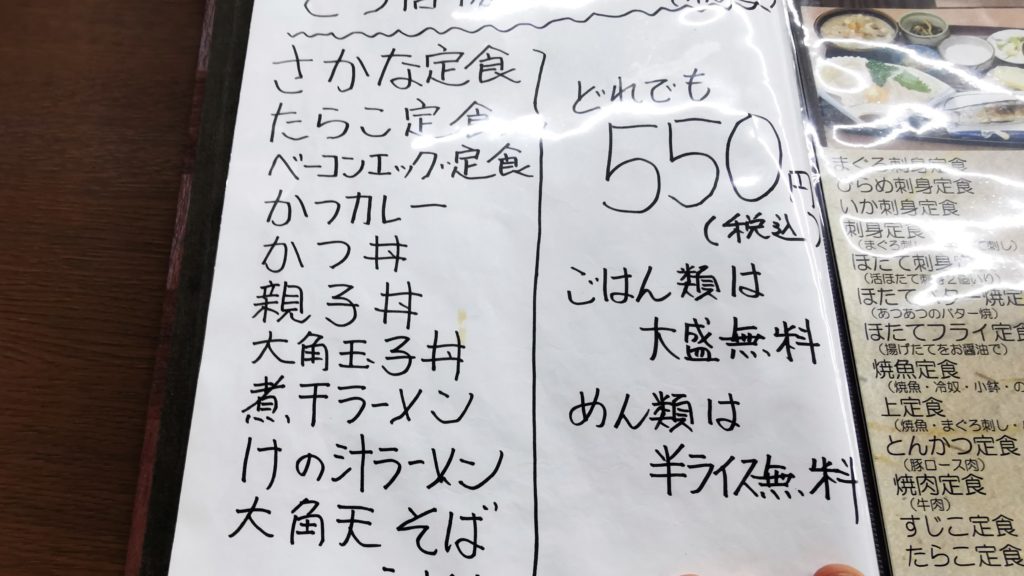 さかな定食
たらこ定食
ベーコンエッグ定食
かつカレー
かつ丼
親子丼
大角玉子丼
煮干ラーメン
けの汁ラーメン
大角天そば
どれでも
550円
(税込)
ごはん類は
大盛無料
めん類は
半ライス無料
まぐろ刺身定食
ひらめ刺身定食
いか刺身定食
刺身定食
(まぐろ刺し
刺し)
ほたて刺身
(活ほたて刺身2個入り)
ほたて
ー焼定
(あつあつのバター焼)
ほたてフライ定食
(揚げたてをお醤油で)
焼魚定食
(焼魚・冷奴・小鉢・の
上定食
(焼魚・まぐろ刺し・
とんかつ定食
(豚ロース肉)
焼肉定食
(牛肉)
すじこ定食
たらこ定食